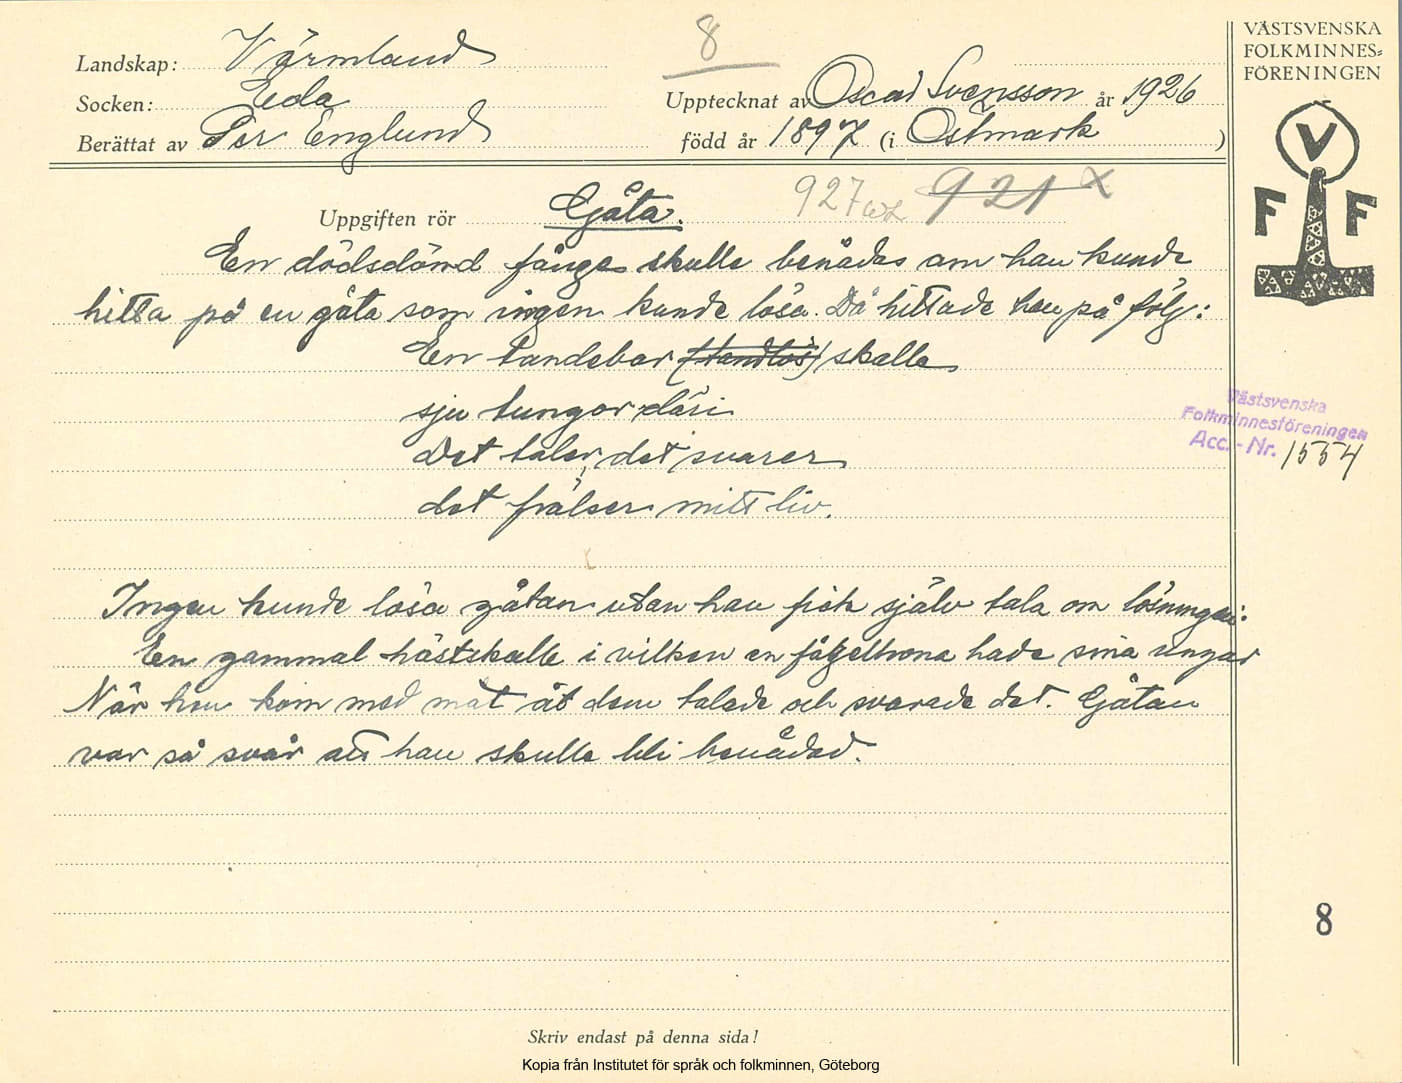 8
VÄSTSVENSKA
FOLKMINNES=
FÖRENINGEN
V
F F
Landskap: Värmland
Socken: Eda
Berättat av Per Englund
Upptecknat av Oscar Svensson år 1926
född år 1897 (i Östmark )
Uppgiften rör Gåta. 927 921 x
En dödsdömd fånge skulle benådas om han kunde
hitta på en gåta som ingen kunde lösa. Då hittade han på följ:
En tandebar (tandlös) skalle
sju tungor däri
Det talar, det svarer
det frälser mitt liv.
Västsvenska
Folkminnesföreningen
Acc.-Nr. 1554
Ingen kunde lösa gåtan utan han fick själv tala om lösningen:
En gammal hästskalle i vilken en fågelhona hade sina ungar
När hon kom med mat åt dem talade och svarade det. Gåtan
var så svår att han skulle bli benådad.
8
Skriv endast på denna sida!
Kopia från Institutet för språk och folkminnen, Göteborg